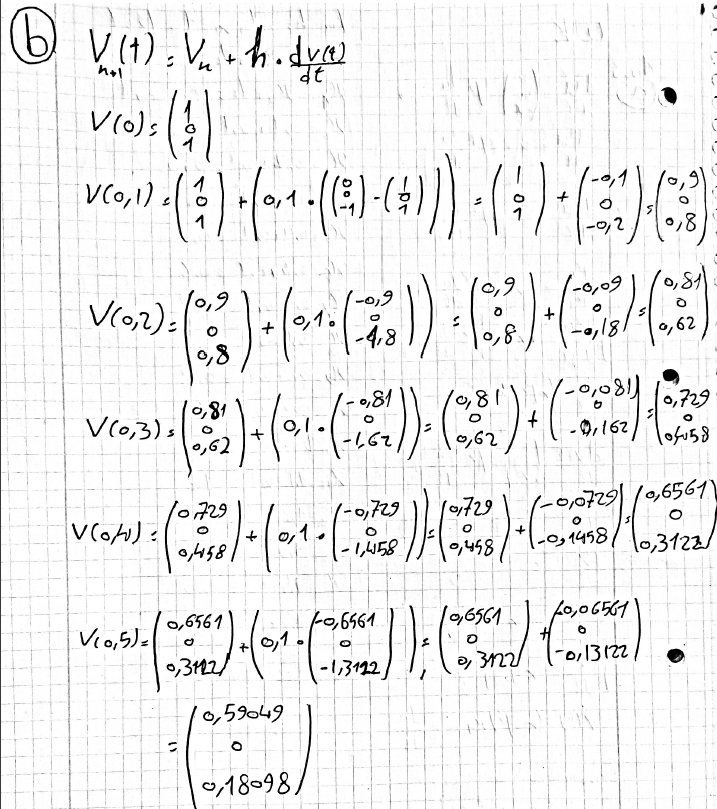 b
V_{n+1}(t) = V_n + h · dV(t)/dt
V(0) = (1 0 1)
V(0,1) = (1 0 1) + (0,1 · ((0 0 -1) - (1 0 1))) = (1 0 1) + (-0,1 0 -0,2) = (0,9 0 0,8)
V(0,2) = (0,9 0 0,8) + (0,1 · (-0,9 0 -1,8)) = (0,9 0 0,8) + (-0,09 0 -0,18) = (0,81 0 0,62)
V(0,3) = (0,81 0 0,62) + (0,1 · (-0,81 0 -1,62)) = (0,81 0 0,62) + (-0,081 0 -0,162) = (0,729 0 0,458)
V(0,4) = (0,729 0 0,458) + (0,1 · (-0,729 0 -1,458)) = (0,729 0 0,458) + (-0,0729 0 -0,1458) = (0,6561 0 0,3122)
V(0,5) = (0,6561 0 0,3122) + (0,1 · (-0,6561 0 -1,3122)) = (0,6561 0 0,3122) + (-0,06561 0 -0,13122)
= (0,59049 0 0,18098)